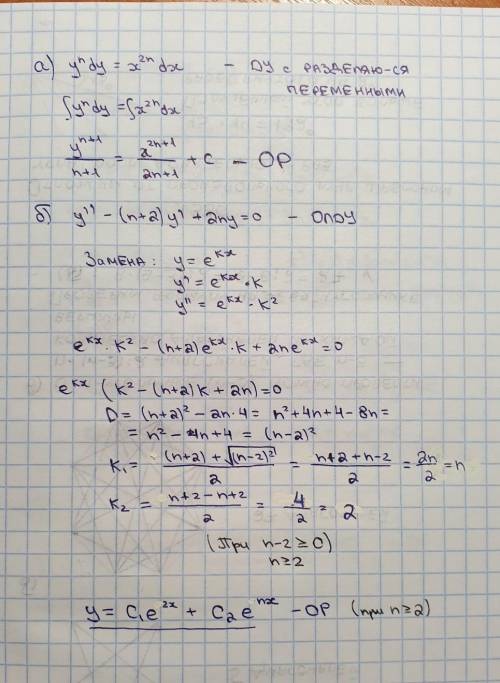 а) yⁿdy = x²ⁿdx – ДУ с РАЗДЕЛЯЮ-СЯ
ПЕРЕМЕННЫМИ
∫yⁿdy = ∫x²ⁿdx
yⁿ⁺¹/n+1 = x²ⁿ⁺¹/2n+1 + C – ОР
б) y'' – (n+2)y' + 2ny = 0 – ОЛДУ
ЗАМЕНА: y = eᵏˣ
y' = eᵏˣ · k
y'' = eᵏˣ · k²
eᵏˣ · k² – (n+2)eᵏˣ · k + 2neᵏˣ = 0
eᵏˣ (k² – (n+2)k + 2n) = 0
D = (n+2)² – 2n·4 = n² + 4n + 4 – 8n =
= n² – 4n + 4 = (n–2)²
K₁ = (n+2) + √(n–2)²/2 = n+2+n–2/2 = 2n/2 = n
K₂ = n+2–n+2/2 = 4/2 = 2
(При n–2 ≥ 0)
n ≥ 2
y = C₁e²ˣ + C₂eⁿˣ – ОР (при n ≥ 2)